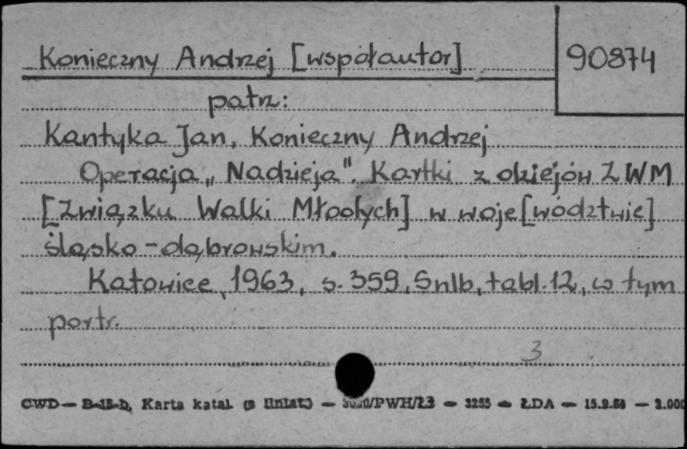 Konieczny Andrzej [współautor]
90874
patrz:
Kantyka Jan, Konieczny Andrzej
Operacja „Nadzieja". Kartki z dziejów ZWM
[Związku Walki Młodych] w woje[wództwie]
śląsko-dąbrowskim.
Katowice, 1963, s. 359, 5nlb, tabl. 12, w tym
portr.
3
CWD— Karta katal. — /PWH/ — 3255 — ŁDA — 15.9.64 — 2.000